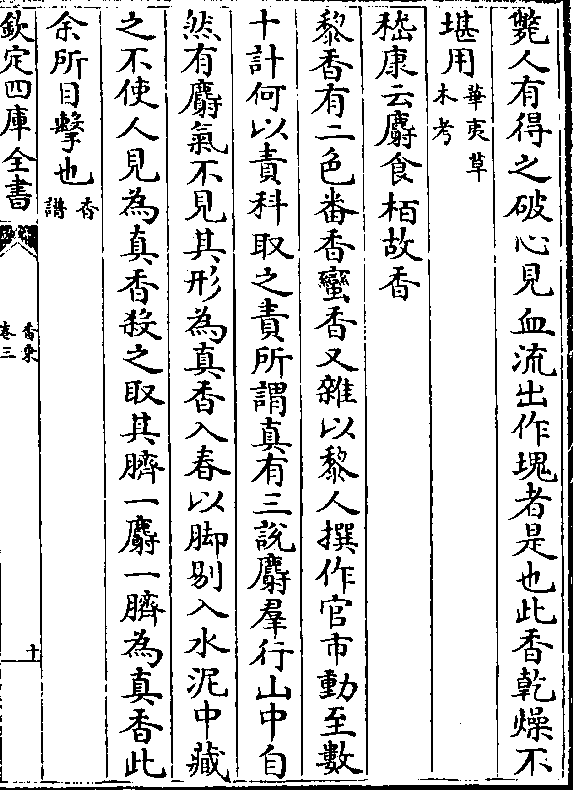 斃人有得之破心見血流出作塊者是也此香乾燥不
堪用華夷草木考
嵇康云麝食栢故香
黎香有二色番香蠻香又雜以黎人撰作官市動至數
十計何以責科取之責所謂真有三說麝羣行山中自
然有麝氣不見其形為真香入春以脚剔入水泥中藏
之不使人見為真香殺之取其臍一麝一臍為真香此
余所目擊也香譜
欽定四庫全書
香乘
卷三
十